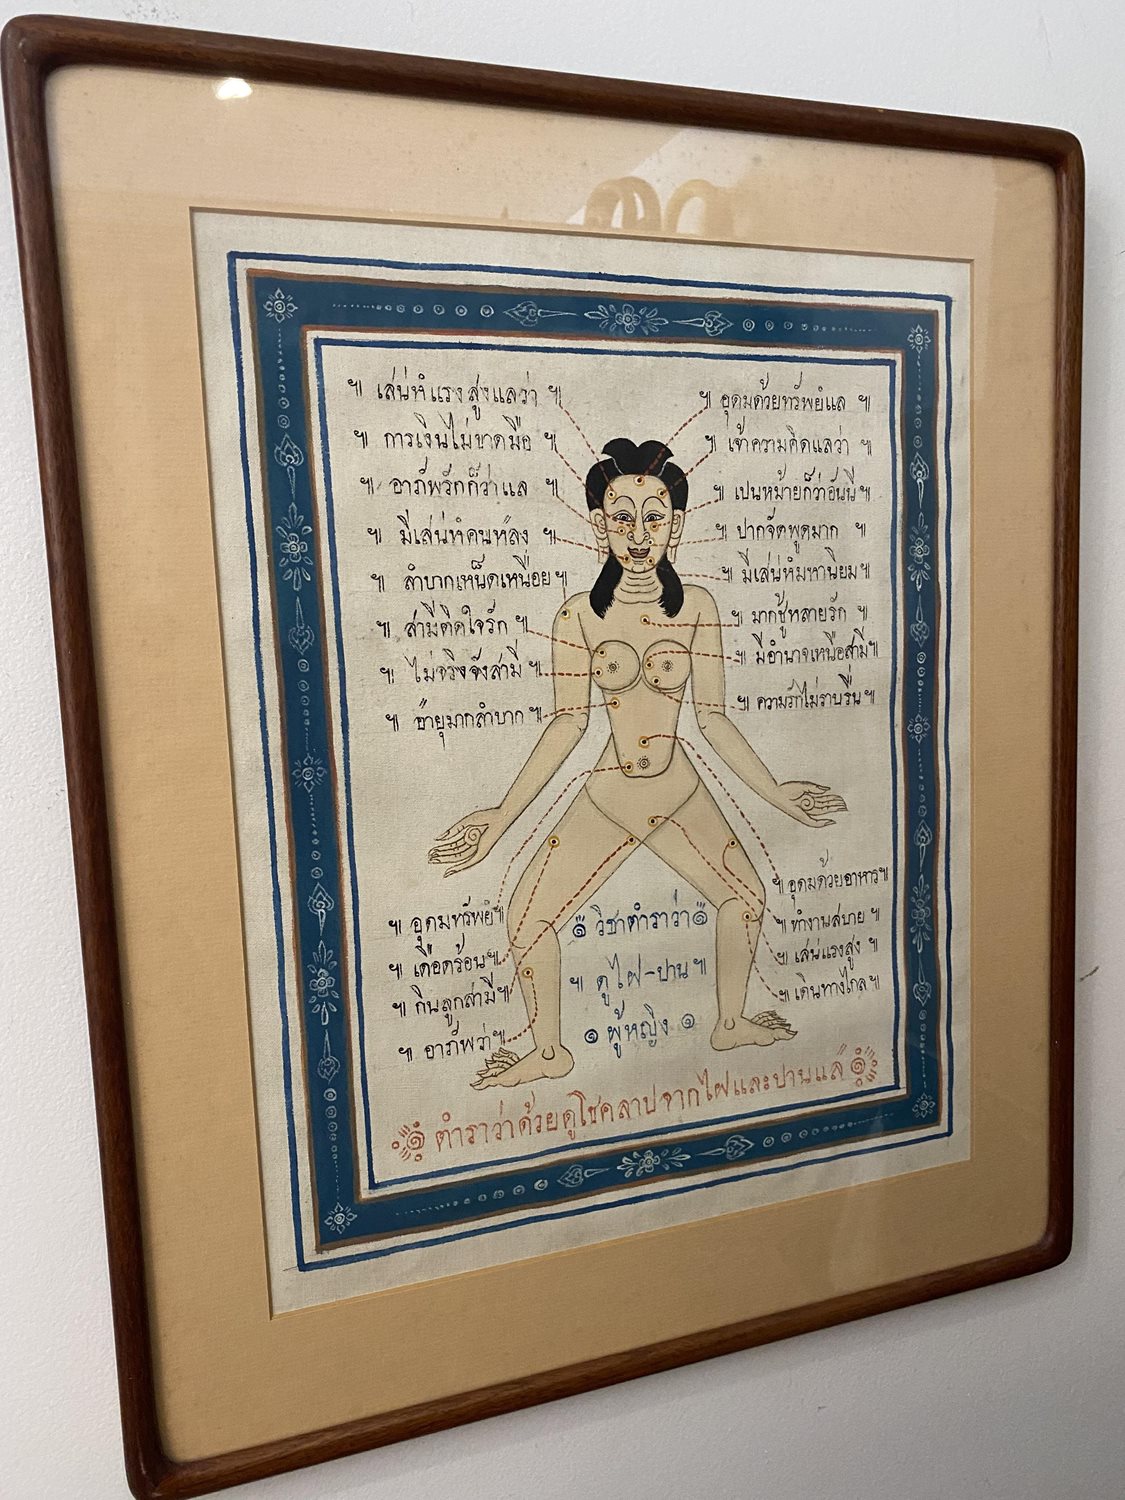 ๚ เส่น่ห์แรงสูงแลว่า ๚
๚ การเงินไม่ขาดมือ ๚
๚ อาภัพรักก็ว่าแล ๚
๚ มีเส่น่ห์คนหลง ๚
๚ ลำบากเหน็ดเหนื่อย ๚
๚ สามีติดใจรัก ๚
๚ ไม่จริงจังสามี ๚
๚ อายุมากลำบาก ๚
๚ อุดมด้วยทรัพย์แล ๚
๚ เจ้าความคิดแลว่า ๚
๚ เปนหม้ายก็ว่าอันนี้ ๚
๚ ปากจัดพูดมาก ๚
๚ มีเส่น่ห์มหานิยม ๚
๚ มากชู้หลายรัก ๚
๚ มีอำนาจเหนือสามี ๚
๚ ความรักไม่ราบรื่น ๚
๚ อุดมทรัพย์ ๚
๚ เดือดร้อน ๚
๚ กินลูกสามี ๚
๚ อาภัพว่า ๚
๚ อุดมด้วยอาหาร ๚
๚ ทำงานสบาย ๚
๚ เส่น่แรงสูง ๚
๚ เดินทางไกล ๚
วิชาตำราว่า
๚ ดูไฝ-ปาน ๚
๑ ผู้หญิง ๑
ตำราว่าด้วยดูโชคลาปจากไฝและปานแล